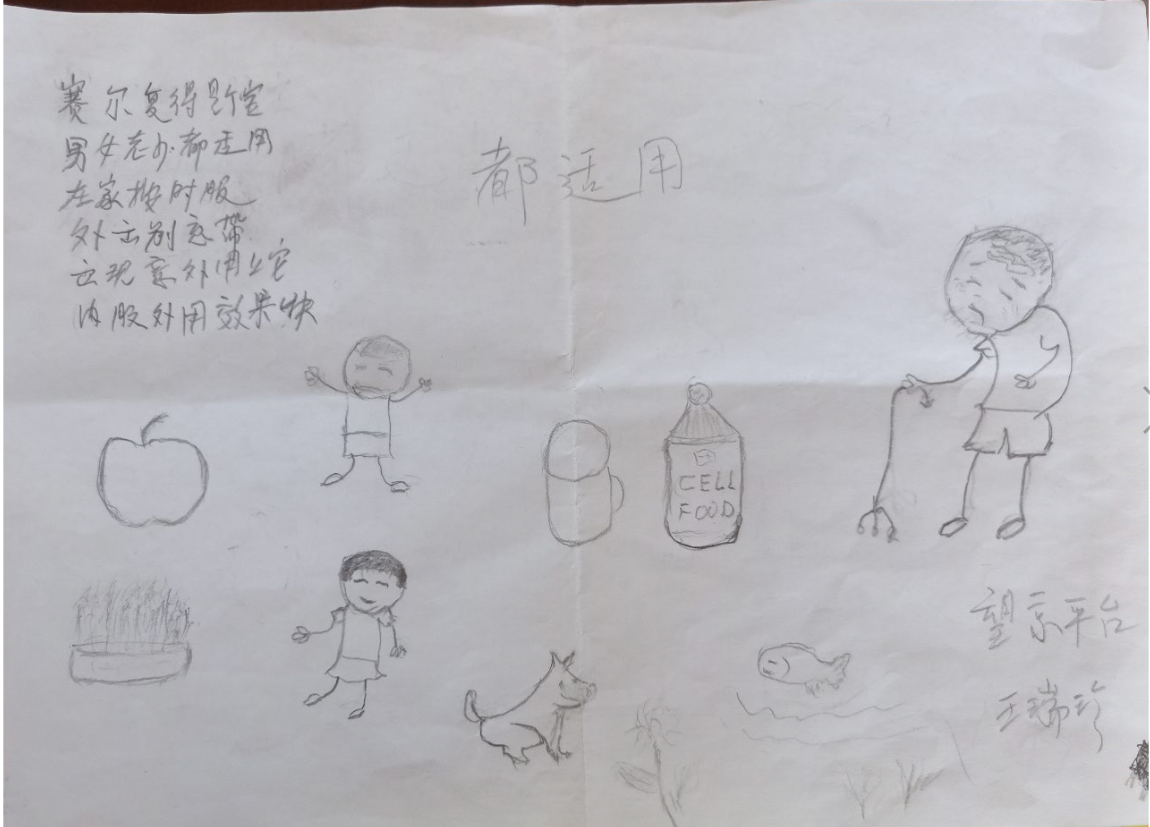 赛尔复得是个宝
男女老少都适用
在家按时服
外出别忘带
出现意外用上它
内服外用效果快
都适用
日
CELL
FOOD
望京平台
王瑞珍